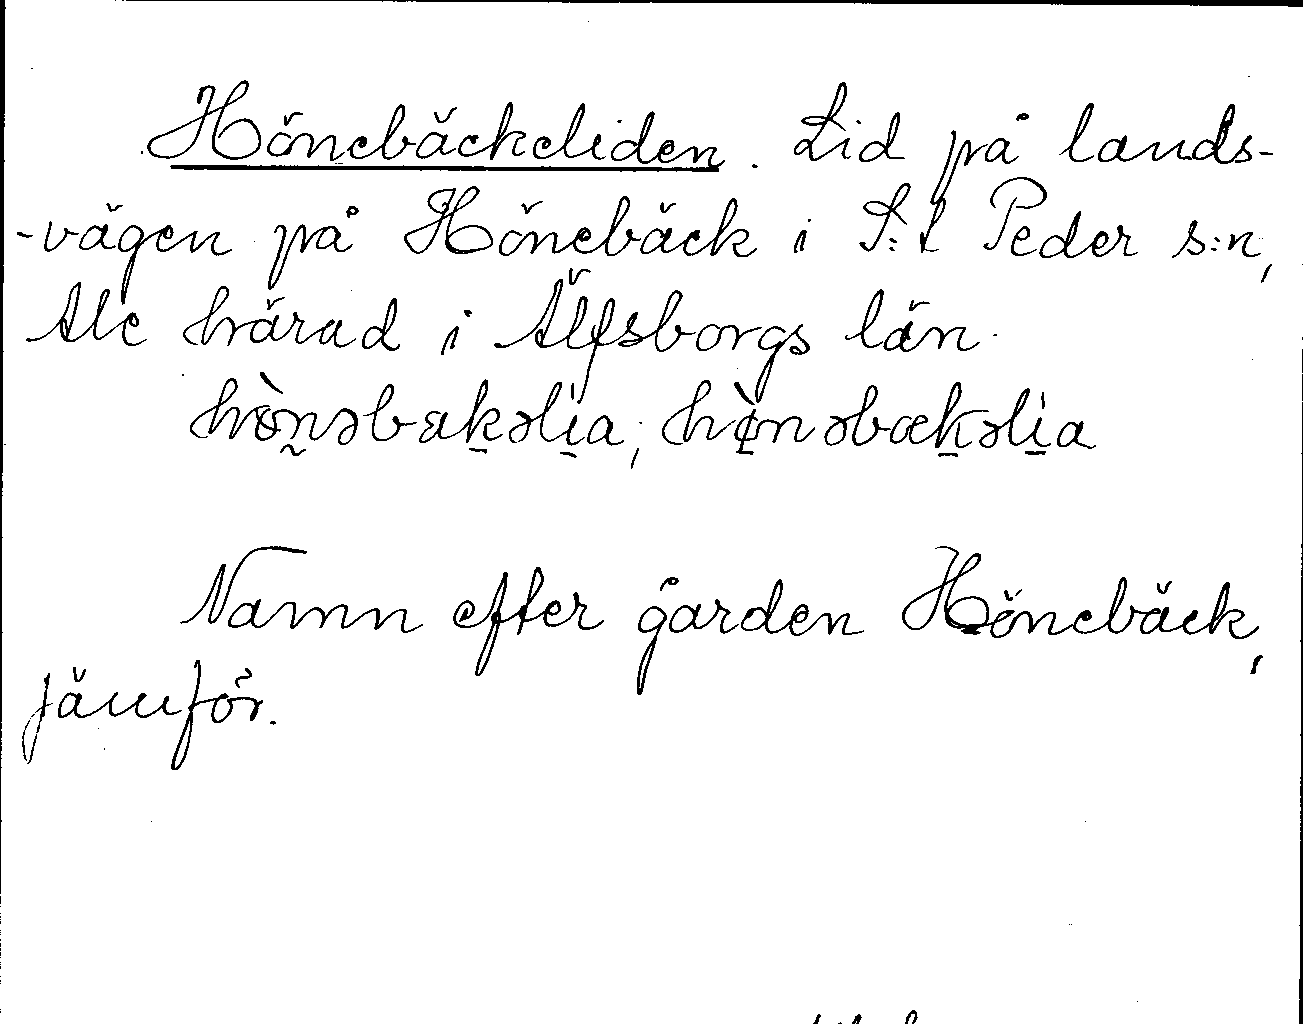 Hönebäckeliden. Lid på lands-
-vägen på Hönebäck i S:t Peder s:n,
Ale härad i Älfsborgs län.
hö̀nəbækəlia, hø̀nəbækəlia
Namn efter gården Hönebäck,
jämför.